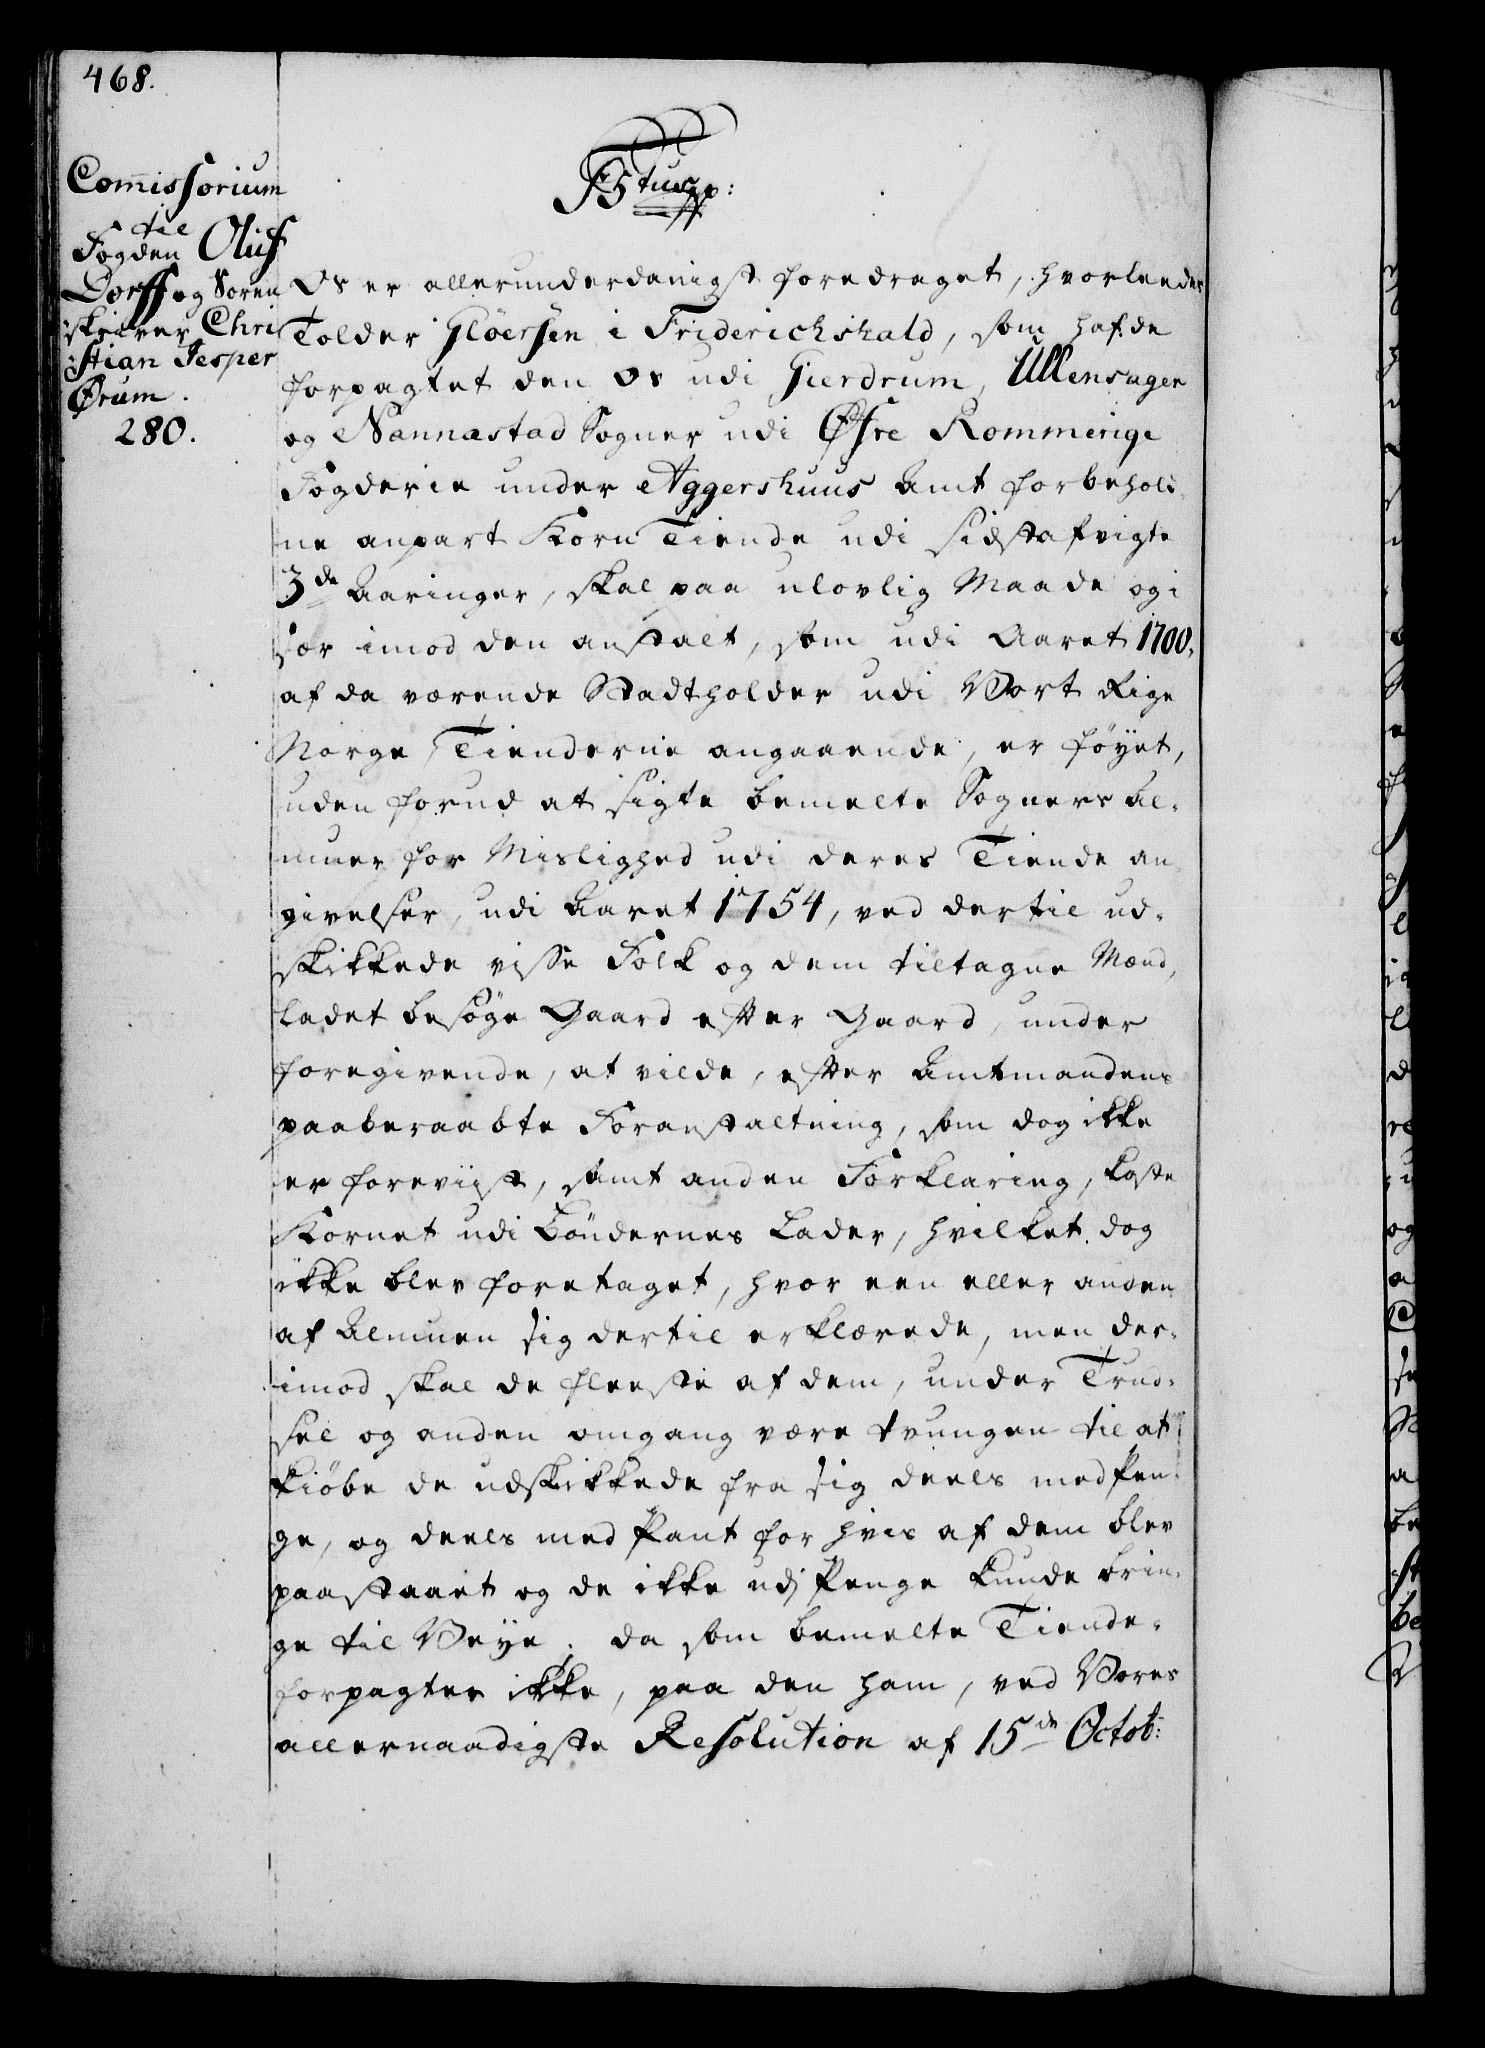 468.
Com̄issorium
til
Fogden Oluf
Dorff og Soren
skriver Chri
stian Jesper
Ørum.
280.
F5tus pp:
Os er allerunderdanigst foredraget, hvorleedes
Tolder Gløersen i Friderichshald, som hafde
forpagtet den Os udi Gierdrum, Ullensager
og Nannæstad Sogner udi Øfre Rommerige
Fogderie under Aggershuus Amt forbehold-
ne anpart Korn Tiende udi sidstafvigte
3de Aaringer, skal paa ulovlig Maade og i
sær imod den anstalt, som udi Aaret 1700,
af da værende Stadtholder udi Vort Rige
Norge, Tienderne angaaende, er føyet,
uden forud at sigte bemelte Sogners Al-
muer for Mislighed udi deres Tiende an-
givelser, udi Aaret 1754, ved dertil ud-
skikkede visse Folk og dem tiltagne Mænd,
ladet besøge Gaard efter Gaard, under
foregivende, at vilde, efter Amtmandens
paaberaabte Foranstaltning, som dog ikke
er foreviist, samt anden Forklaring, kaste
Kornet udi Bøndernes Lader, hvilket dog
ikke blev foretaget, hvor een eller anden
af Almuen sig dertil erklærede, men der-
imod skal de fleeste af dem, under Trud-
sel og anden omgang være tvungen til at
kiøbe de udskikkede fra sig deels med Pen-
ge, og deels med Pant for hvis af dem blev
paastaaet og de ikke udj Penge kunde brin-
ge til Veye. da som bemelte Tiende-
forpagter ikke, paa den ham, ved Vores
allernaadigste Resolution af 15de Octob: